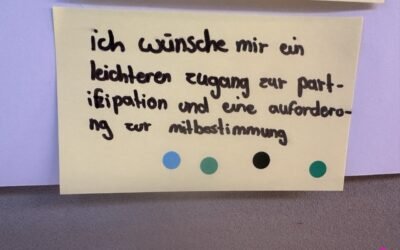 ich wünsche mir ein
leichteren zugang zur part-
izipation und eine auforderu-
ng zur mitbestimmung